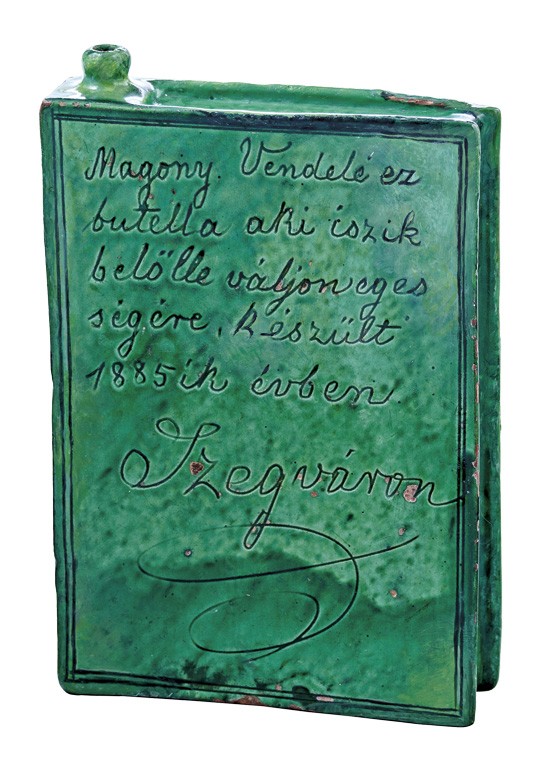 Magony. Vendelé ez
butella aki iszik
belőlle váljon eges
ségére, Készűlt
1885ik évben.
Szegváron